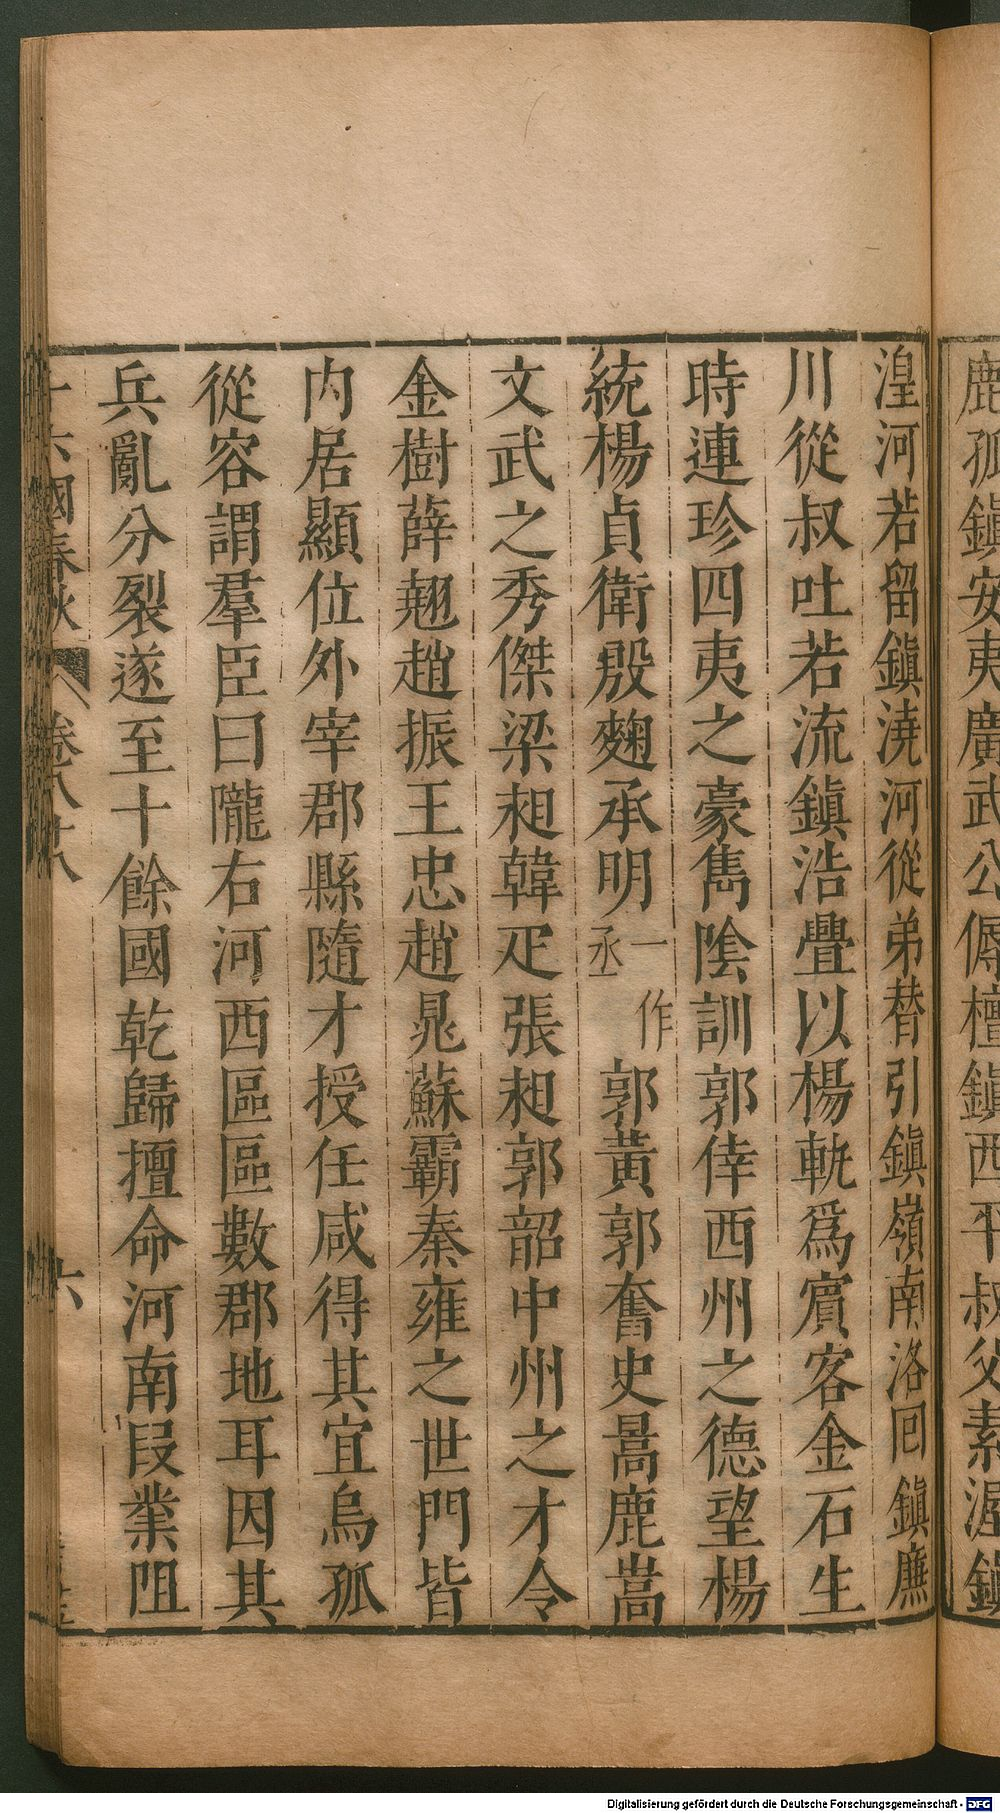 鹿孤鎮安夷廣武公傉檀鎮西平叔父素渥鎮
湟河若留鎮澆河從弟替引鎮嶺南洛回鎮廉
川從叔吐若流鎮浩亹以楊軌爲賓客金石生
時連珍四夷之豪雋陰訓郭倖西州之德望楊
統楊貞衛殷麴承明一作丞郭黃郭奮史暠鹿嵩
文武之秀傑梁昶韓疋張昶郭韶中州之才令
金樹薛翹趙振王忠趙晁蘇霸秦雍之世門皆
內居顯位外宰郡縣隨才授任咸得其宜烏孤
從容謂羣臣曰隴右河西區區數郡地耳因其
兵亂分裂遂至十餘國乾歸擅命河南段業阻
十六國春秋 卷八十八 六
Digitalisierung gefördert durch die Deutsche Forschungsgemeinschaft - DFG